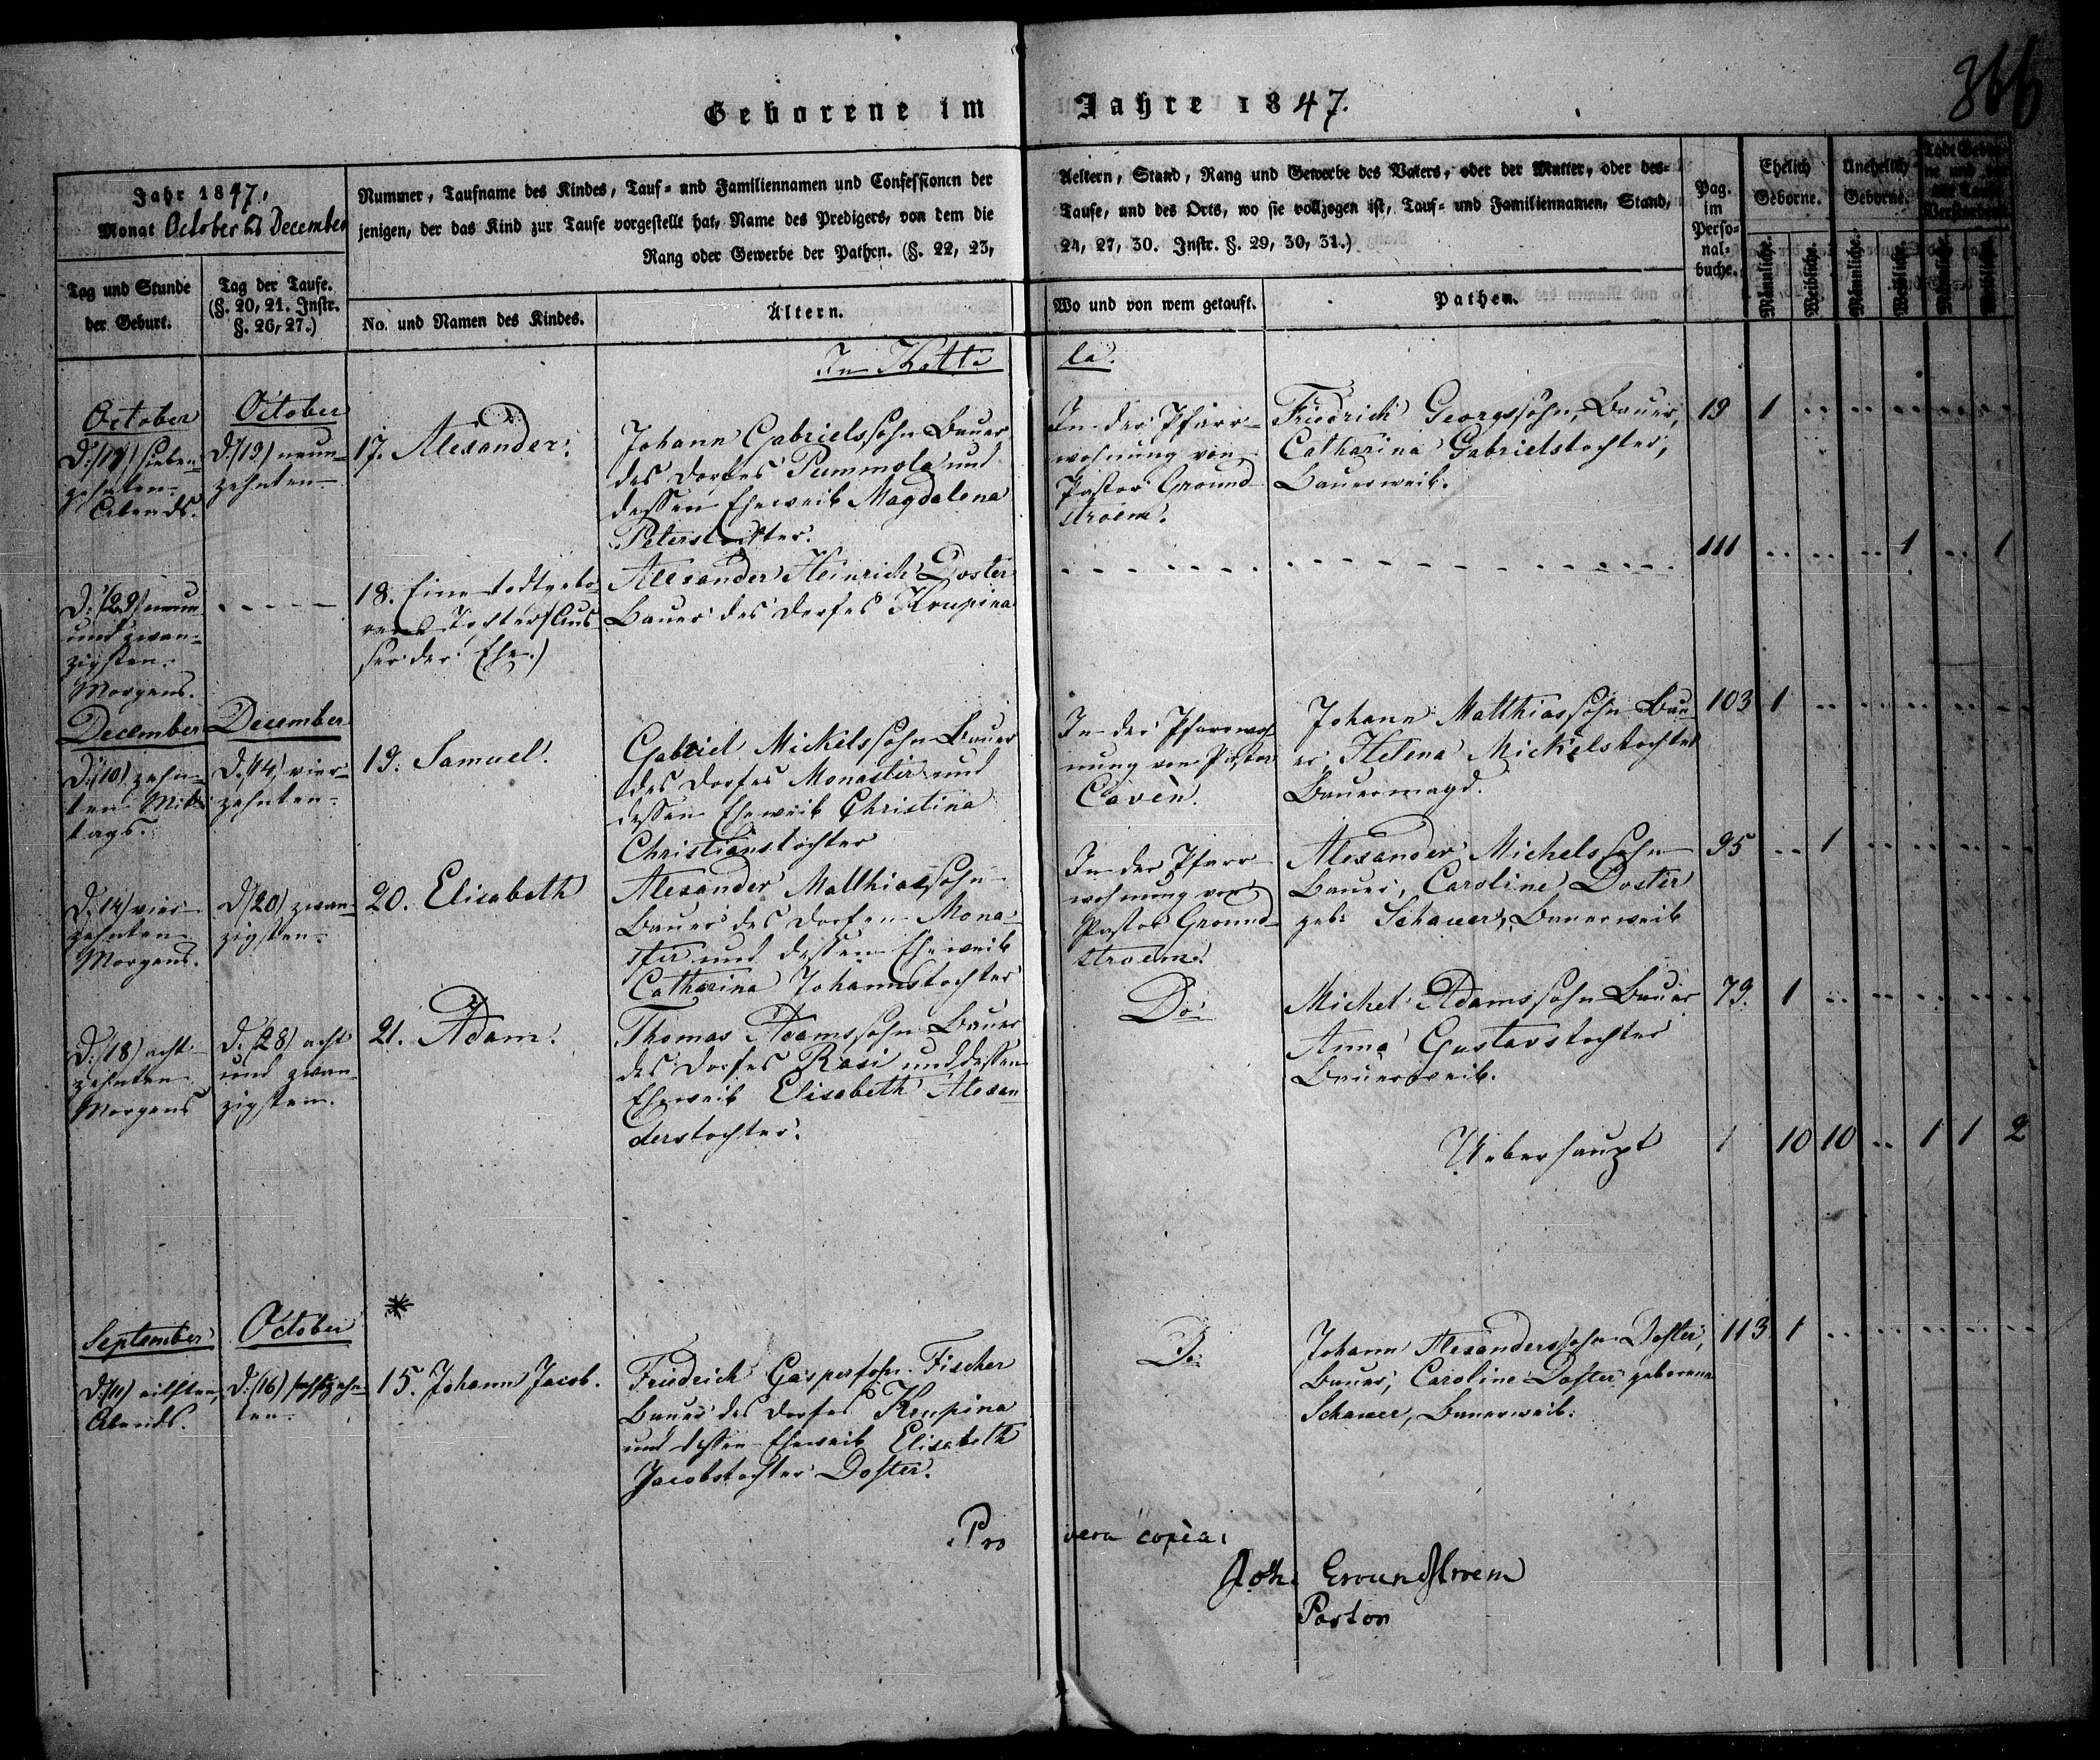 366
Geborene im Jahre 1847.
Jahr 1847,
Monat October bis December
Nummer, Taufname des Kindes, Tauf- und Familiennamen und Confessionen der
jenigen, der das Kind zur Taufe vorgestellt hat, Name des Predigers, von dem die
Rang oder Gewerbe der Pathen. (§. 22, 23,
Aeltern, Stand, Rang und Gewerbe des Vaters, oder der Mutter, oder des-
Taufe, und des Orts, wo sie vollzogen ist, Tauf- und Familiennamen, Stand,
24, 27, 30. Instr. §. 29, 30, 31.)
Pag.
im
Perso-
nal-
buche.
Ehelich
Geborne.
Unehelich
Geborne.
Männliche.
Weibliche.
Männliche.
Weibliche.
Männliche.
Weibliche.
Tag und Stunde
der Geburt.
Tag der Taufe.
(§. 20, 21. Instr.
§. 26, 27.)
No. und Namen des Kindes.
Ältern.
Wo und von wem getauft.
Pathen.
In Kolti la.
October
D: (17) sieben-
zehnten
Abends.
October
D: (19) neun-
zehnten
17. Alexander.
Johann Gabrielssohn Bauer
des Dorfes Pummola und
dessen Eheweib Magdalena
Peterstochter.
In der Pfarr-
wohnung von
Pastor Ground-
stroem.
Friedrich Georgssohn, Bauer,
Catharina Gabrielstochter,
Bauerweib.
19 1
D: (29) neun
und zwan-
zigsten
Morgens.
18. Eine todtgebo-
rene Tochter (Aus
ser der Ehe.)
Alexander Heinrich Doster
Bauer des Dorfes Krupina
111 1 1
December
D: (10) zehn-
ten Mit-
tags.
December
D: (14) vier-
zehnten
19. Samuel.
Gabriel Mickelssohn Bauer
des Dorfes Monastir und
dessen Eheweib Christina
Christianstochter
In der Pfarrwoh-
nung von Pastor
Cavèn.
Johann Matthiassohn Bau-
er, Helena Mickelstochter
Bauermagd.
103 1
D: 14) vier-
zehnten
Morgens.
D (20) zwan-
zigsten
20. Elisabeth
Alexander Matthiassohn
Bauer des Dorfes Mona-
stir und dessen Eheweib
Catharina Johannstochter
In der Pfarr-
wohnung von
Pastor Ground-
stroem.
Alexander Michelssohn
Bauer, Caroline Doster
geb: Schauer, Bauerweib
95 1
D: (18) acht-
zehnten
Morgens
D. (28) acht
und zwan-
zigsten.
21. Adam.
Thomas Adamssohn Bauer
des Dorfes Rosi und dessen
Eheweib Elisabeth Alexan-
derstochter.
Do
Michel Adamssohn Bauer
Anna Gustavstochter
Bauerweib.
79. 1
Ueberhaupt 1 10 10 1 1 2
September
D: (11) eilften,
Abends.
October
D: (16) sechszehn-
ten
*
15. Johann Jacob.
Friedrich Caspersohn Fischer
Bauer des Dorfes Krupina
und dessen Eheweib Elisabeth
Jacobstochter Doster.
Do
Johann Alexanderssohn Doster,
Bauer, Caroline Doster geborene
Schauer, Bauerweib.
113 1
Pro vera copia:
Joh: Groundstroem
Pastor